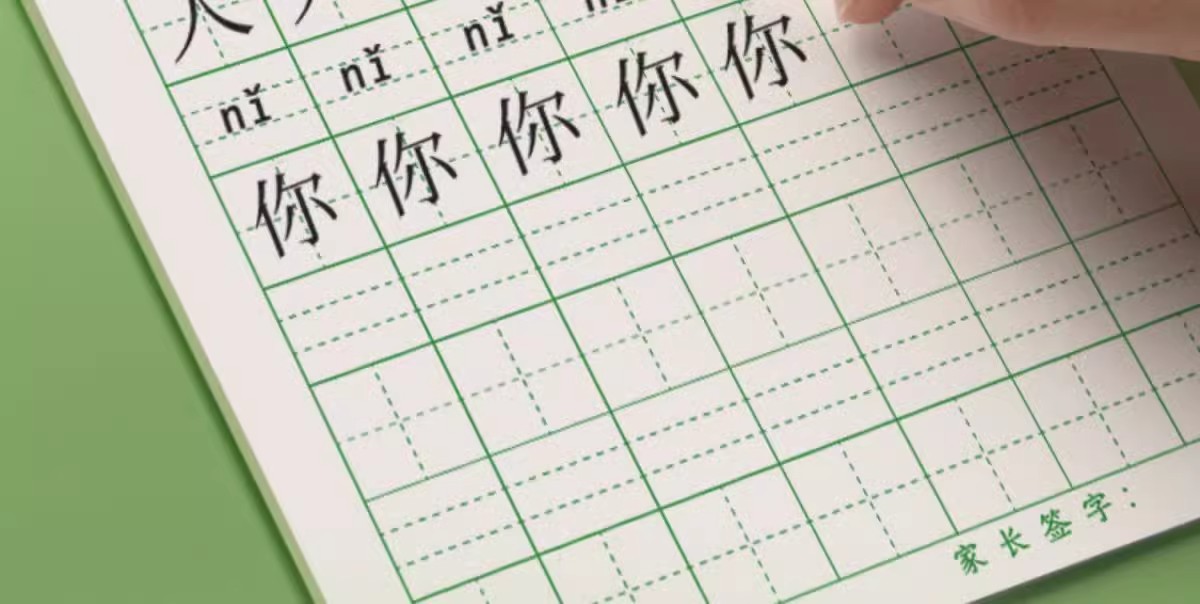 人
nǐ nǐ nǐ
你 你 你 你 你
家长签字：